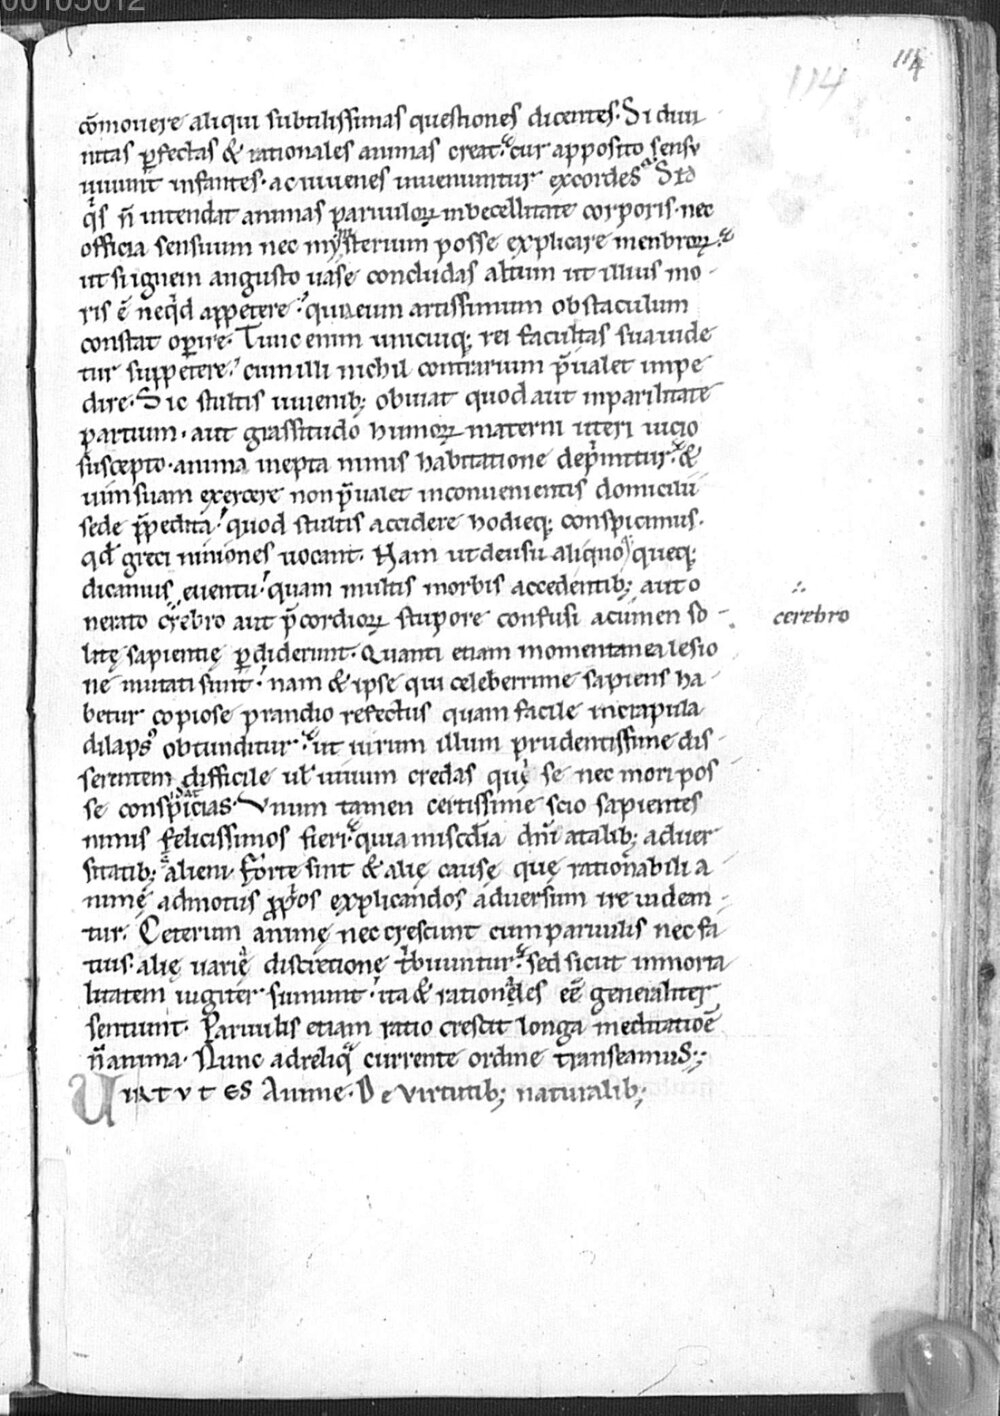 00105012
114
114
cōmouere aliqui subtilissimas questiones dicentes. Si diui
nitas ꝑfectas & rationales animas creat. cur apposito sensu
uiuunt infantes. ac iuuenes inueniuntur excordes Sed
q̇s n̄ intendat animas paruuloꝝ inbecellitate corporis. nec
officia sensuum nec mysterium posse explicare menbroꝝ.
ut si ignem angusto uase concludas altum ut illius mo-
ris ē neq̇d appetere. quia eum artissimum obstaculum
constat oꝑire. Tunc enim unicuiq; rei facultas sua uide
tur suppetere. cum illi nichil contrarium p̄ualet impe
dire. Sic stultis iuuenib; obuiat quod aut inparilitate
partium. aut grassitudo humoꝝ materni uteri uicio
suscepto. anima inepta nimis habitatione dep̄mitur. &
uim suam exercere non p̄ualet inconuenientis domicilii
sede p̄pedita. quod stultis accidere hodieq; conspicimus.
qđ greci miniones uocant. Nam ut de usu aliquo queq;
dicamus euentu. quam multis morbis accedentib; aut o
nerato cerebro aut p̄cordioꝝ stupore confusi acumen so-
litę sapientię ꝑdiderunt. Quanti etiam momentanea lesio
ne mutati sunt. nam & ipse qui celeberrime sapiens ha-
betur copiose prandio refectus quam facile in crapula
dilapsꝰ obtunditur. ut uirum illum prudentissime dis-
serentem difficile ul̄ uiuum credas quę se nec mori pos
se conspicias. Unum tamen certissime scio sapientes
nimis felicissimos fieri. quia miscđia dn̄i a talib; aduer
sitatib; alieni. forte sint & alię causę quę rationabili a-
nimę admotus ꝓprios explicandos aduersum ire uiden-
tur. Ceterum animę nec crescunt cum paruulis nec fa
tuis. alię uarię discretione tribuuntur. sed sicut inmorta
litatem iugiter sumunt. ita & rationeles eē generaliter
sentiunt. Paruulis etiam ratio crescit longa meditatioē
n̄ anima. Nunc ad reliq̄ currente ordine transeamus:;
UIRTUTES Anime. De virtutib; naturalib;
cerebro